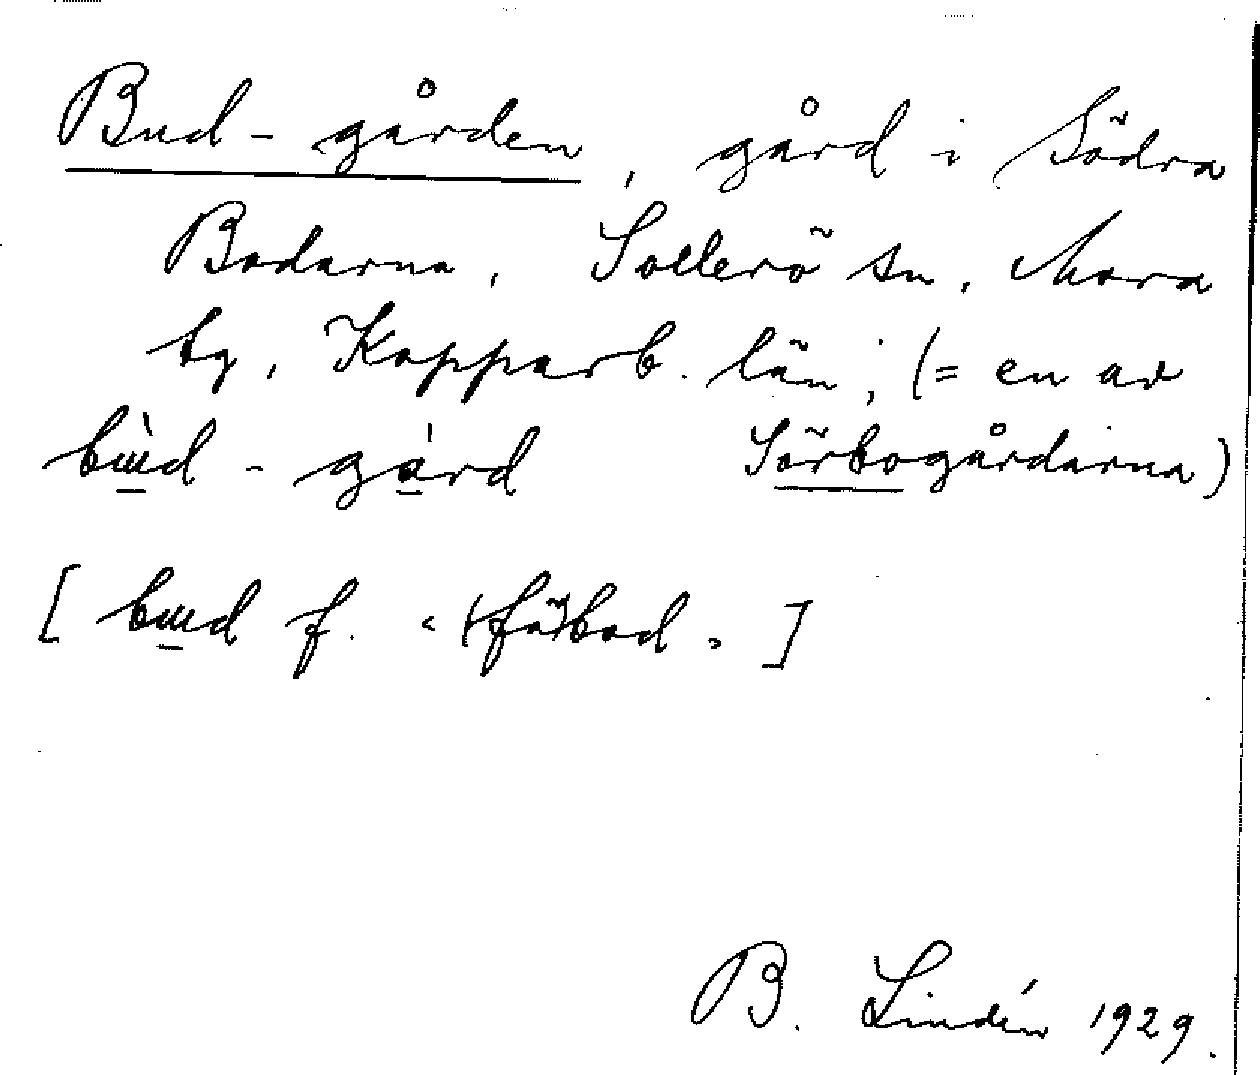 Bud-gården, gård i Södra
Bodarna, Sollerö sn, Mora
tg, Kopparb. län; (= en av
bɯ̱̀d - ga̱̍rd Sörbogårdarna)
[ bɯ̱d f. "(få)bod". ]
B. Lindén 1929.